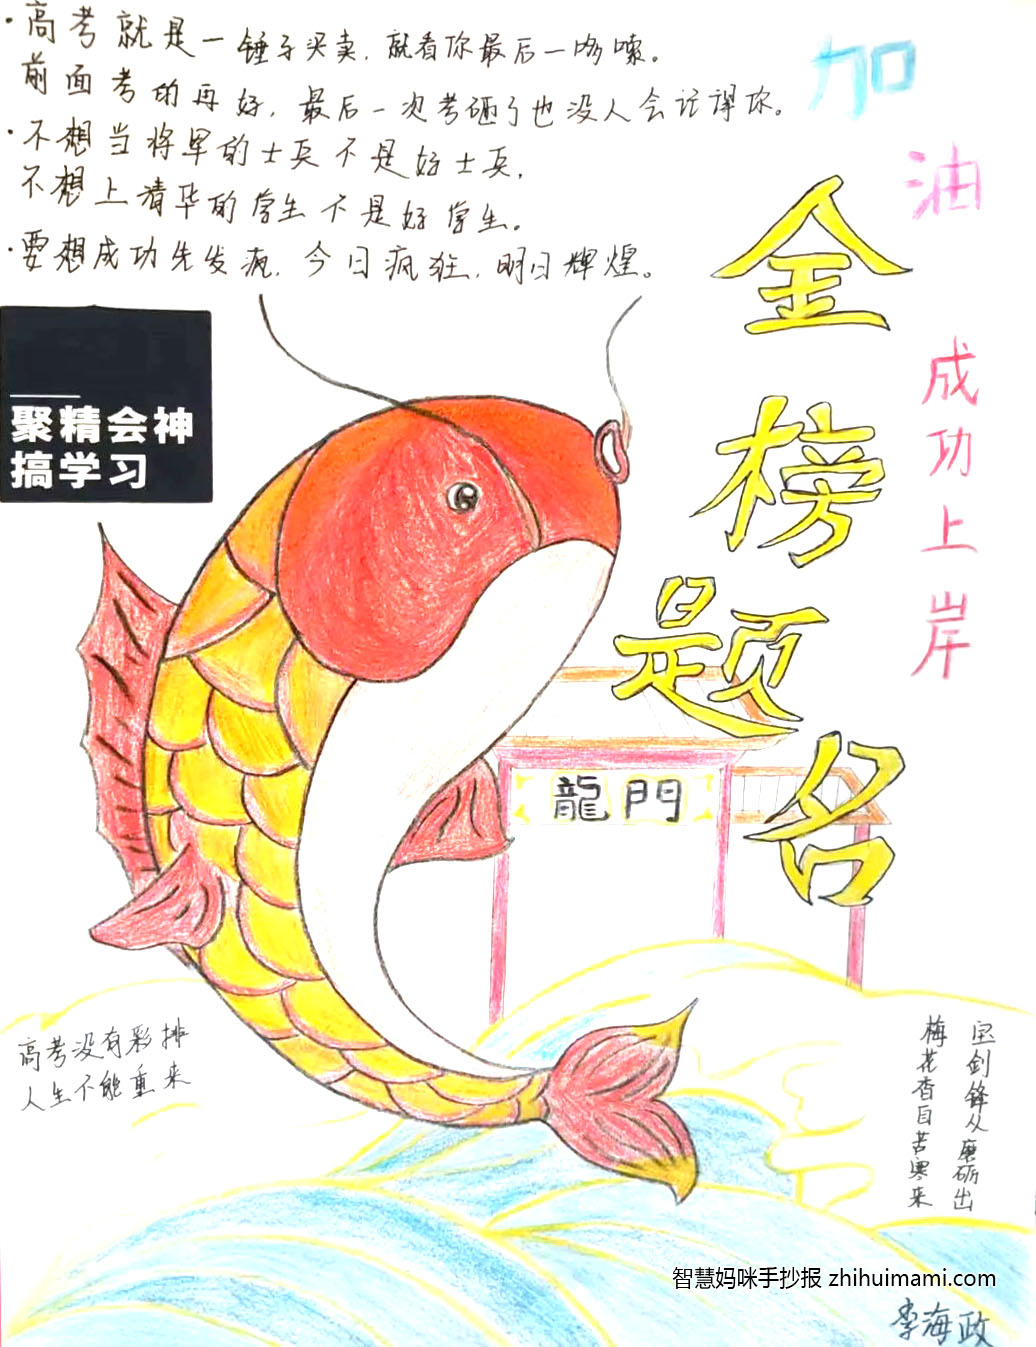 ·高考就是一锤子买卖,就看你最后一哆嗦。
前面考的再好,最后一次考砸了也没人会记得你。
·不想当将军的士兵不是好士兵,
不想上清华的学生不是好学生。
·要想成功先发疯,今日疯狂,明日辉煌。
加油
成功上岸
金榜题名
聚精会神
搞学习
龍門
高考没有彩排
人生不能重来
宝剑锋从磨砺出
梅花香自苦寒来
智慧妈咪手抄报 zhihuimami.com
李海政